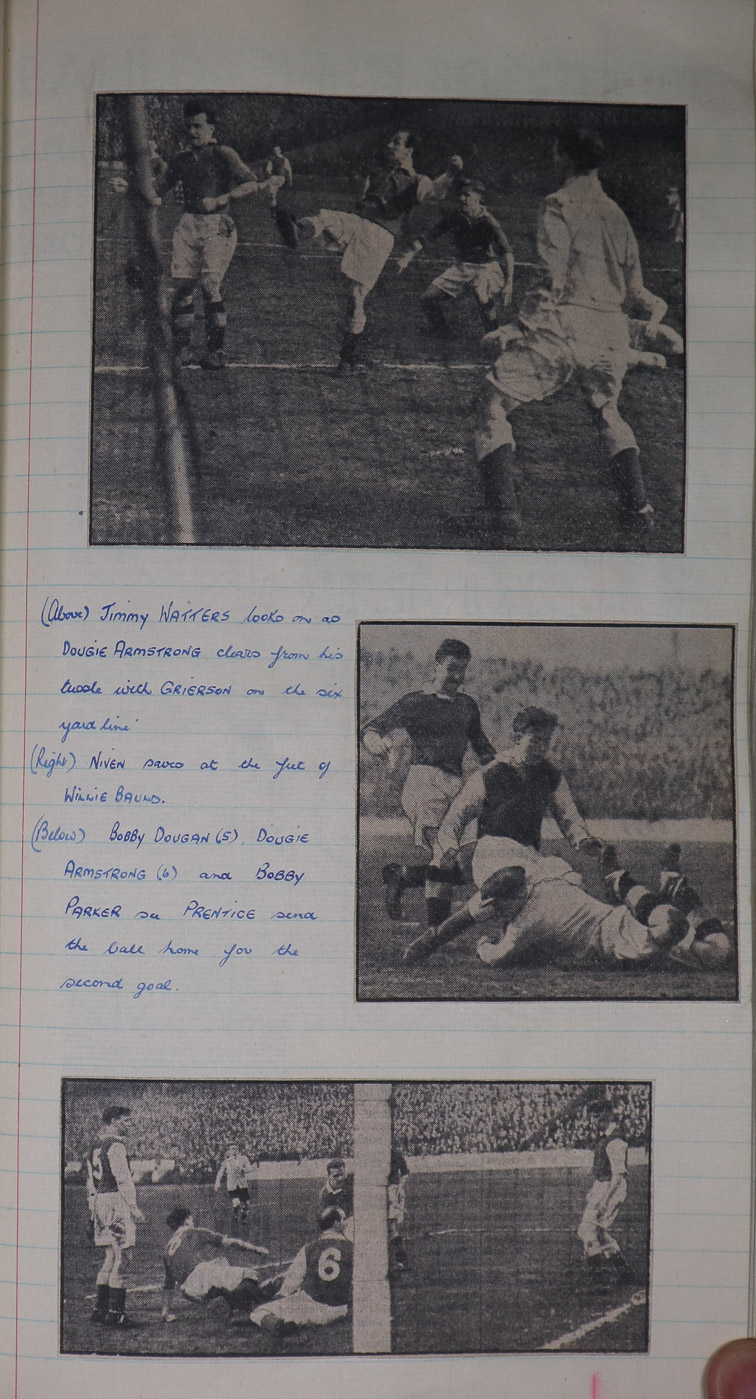 (Above) Jimmy WATTERS looks on as
DOUGIE ARMSTRONG clears from his
tussle with GRIERSON on the six
yard line'
(Right) NIVEN saves at the feet of
WILLIE BAULD.
(Below) BOBBY DOUGAN (5) DOUGIE
ARMSTRONG (6) and BOBBY
PARKER see PRENTICE send
the ball home for the
second goal.
5
6